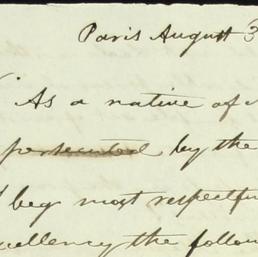 Paris August 3
As a native of
persecuted by the
beg most respectfu
cellency the follow